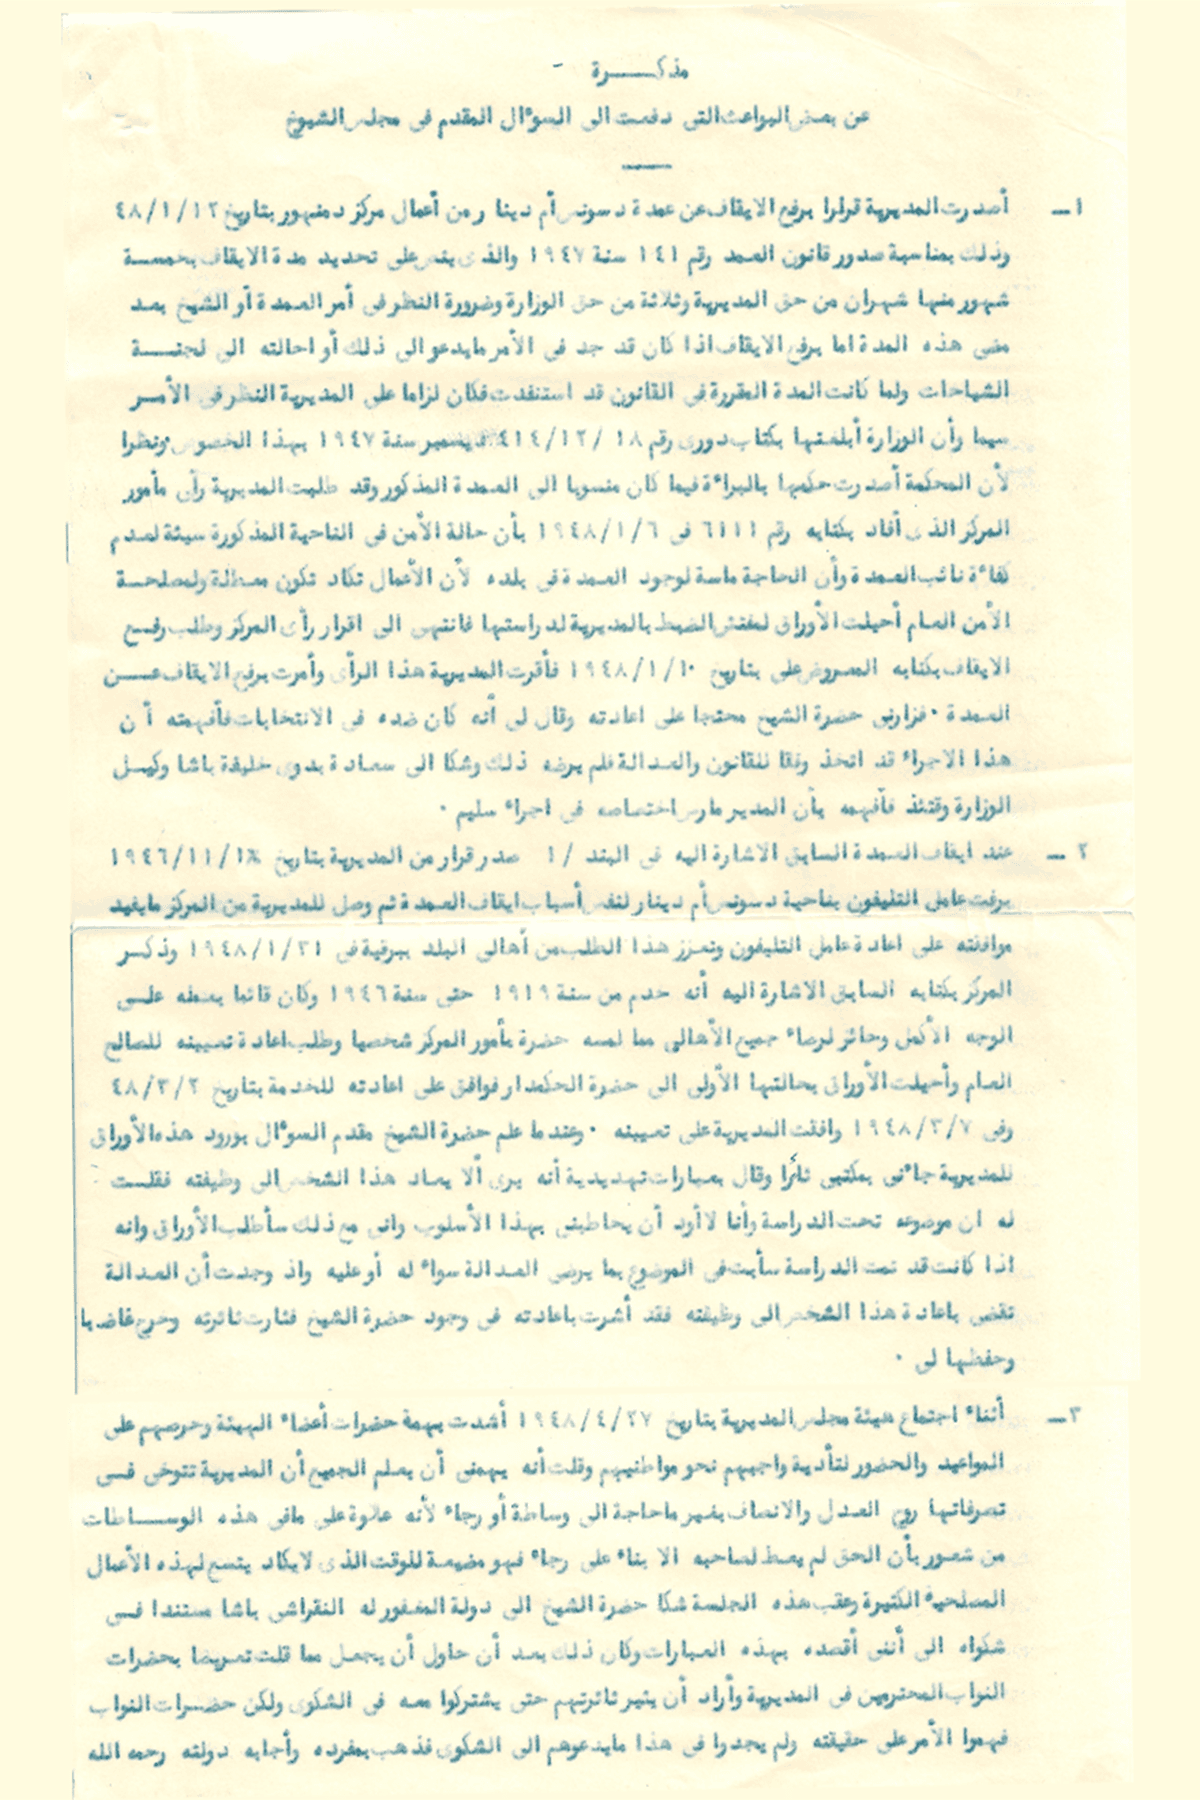 مذكـــــرة -
عن بعض البواعث التى دفعت الى السؤال المقدم فى مجلس الشيوخ
١ــ أصدرت المديرية قرارا برفع الايقاف عن عمدة دسونس أم دينار من أعمال مركز دمنهور بتاريخ ٤٨/١/١٢
وذلك بمناسبة صدور قانون العمد رقم ١٤١ سنة ١٩٤٧ والذى ينص على تحديد مدة الايقاف بخمســة
شهور منها شهران من حق المديرية وثلاثة من حق الوزارة وضرورة النظر فى أمر العمدة أو الشيخ بعد
مضى هذه المدة اما برفع الايقاف اذا كان قد جد فى الأمر مايدعو الى ذلك أو احالته الى لجنــــة
الشياحات ولما كانت المدة المقررة فى القانون قد استنفدت فكان لزاما على المديرية النظر فى الأمـــر
سيما وأن الوزارة أبلغتها بكتاب دورى رقم ٤١٤/١٢/ ١٨ ديسمبر سنة ١٩٤٧ بهذا الخصوص ونظرا
لأن المحكمة أصدرت حكمها بالبراءة فيما كان منسوبا الى العمدة المذكور وقد طلبت المديرية رأى مأمور
المركز الذى أفاد بكتابه رقم ٦١١١ فى ١٩٤٨/١/٦ بأن حالة الأمن فى الناحية المذكورة سيئة لعدم
كفاءة نائب العمدة وأن الحاجة ماسة لوجود العمدة فى بلده لأن الأعمال تكاد تكون معطلة ولمصلحــة
الأمن العام أحيلت الأوراق لمفتش الضبط بالمديرية لدراستها فانتهى الى اقرار رأى المركز وطلب رفـــع
الايقاف بكتابه المعروض على بتاريخ ١٩٤٨/١/١٠ فأقرت المديرية هذا الرأى وأمرت برفع الايقاف عـــن
العمدة ٠ فزارنى حضرة الشيخ محتجا على اعادته وقال لى أنه كان ضده فى الانتخابات فأفهمته أن
هذا الاجراء قد اتخذ وفقا للقانون والعدالة فلم يرضه ذلك وشكا الى سعادة بدوى خليفة باشا وكيــل
الوزارة وقتئذ فأفهمه بأن المدير مارس اختصاصه فى اجراء سليم ٠
٢ ــ عند ايقاف العمدة السابق الاشارة اليه فى البند /١ صدر قرار من المديرية بتاريخ ١٩٤٦/١١/
برفت عامل التليفون بناحية دسونس أم دينار لنفس أسباب ايقاف العمدة ثم وصل للمديرية من المركز مايفيد
موافقته على اعادة عامل التليفون وتعزز هذا الطلب من أهالى البلد ببرقية فى ١٩٤٨/١/٣١ وذكـــر
المركز بكتابه السابق الاشارة اليه أنه خدم من سنة ١٩١٩ حتى سنة ١٩٤٦ وكان قائما بعمله علـــى
الوجه الأكمل وحائز لرضاء جميع الأهالى مما لمسه حضرة مأمور المركز شخصيا وطلب اعادة تعيينه للصالح
العام وأحيلت الأوراق بحالتها الأولى الى حضرة الحكمدار فوافق على اعادته للخدمة بتاريخ ٤٨/٣/٢
وفى ١٩٤٨/٣/٧ وافقت المديرية على تعيينه ٠ وعندما علم حضرة الشيخ مقدم السؤال بورود هذه الأوراق
للمديرية جاءنى بمكتبى ثائرا وقال بعبارات تهديدية أنه يرى ألا يعاد هذا الشخص الى وظيفته فقلـــت
له ان موضوعه تحت الدراسة وأنا لا أود أن يخاطبنى بهذا الأسلوب وانى مع ذلك سأطلب الأوراق وانه
اذا كانت قد تمت الدراسة سأبت فى الموضوع بما يرضى العدالة سواء له أو عليه واذ وجدت أن العدالة
تقضى باعادة هذا الشخص الى وظيفته فقد أشرت باعادته فى وجود حضرة الشيخ فثارت ثائرته وخرج غاضبا
وحفظها لى ٠
٣ــ أثناء اجتماع هيئة مجلس المديرية بتاريخ ١٩٤٨/٤/٢٧ أشدت بهمة حضرات أعضاء الهيئة وحرصهم على
المواعيد والحضور لتأدية واجبهم نحو مواطنيهم وقلت أنه يهمنى أن يعلم الجميع أن المديرية تتوخى فــى
تصرفاتها روح العدل والانصاف بغير ماحاجة الى وساطة أو رجاء لأنه علاوة على مافى هذه الوســـاطات
من شعور بأن الحق لم يعط لصاحبه الا بناء على رجاء فهو مضيعة للوقت الذى لايكاد يتسع لهذه الأعمال
المصلحية الكثيرة وعقب هذه الجلسة شكا حضرة الشيخ الى دولة المغفور له النقراشى باشا مستندا فــى
شكواه الى أننى أقصده بهذه العبارات وكان ذلك بعد أن حاول أن يجعل مما قلت تعريضا بحضرات
النواب المحترمين فى المديرية وأراد أن يثير ثائرتهم حتى يشتركوا معه فى الشكوى ولكن حضـــرات النواب
فهموا الأمر على حقيقته ولم يجدوا فى هذا مايدعوهم الى الشكوى فذهب بمفرده وأجابه دولته رحمه الله